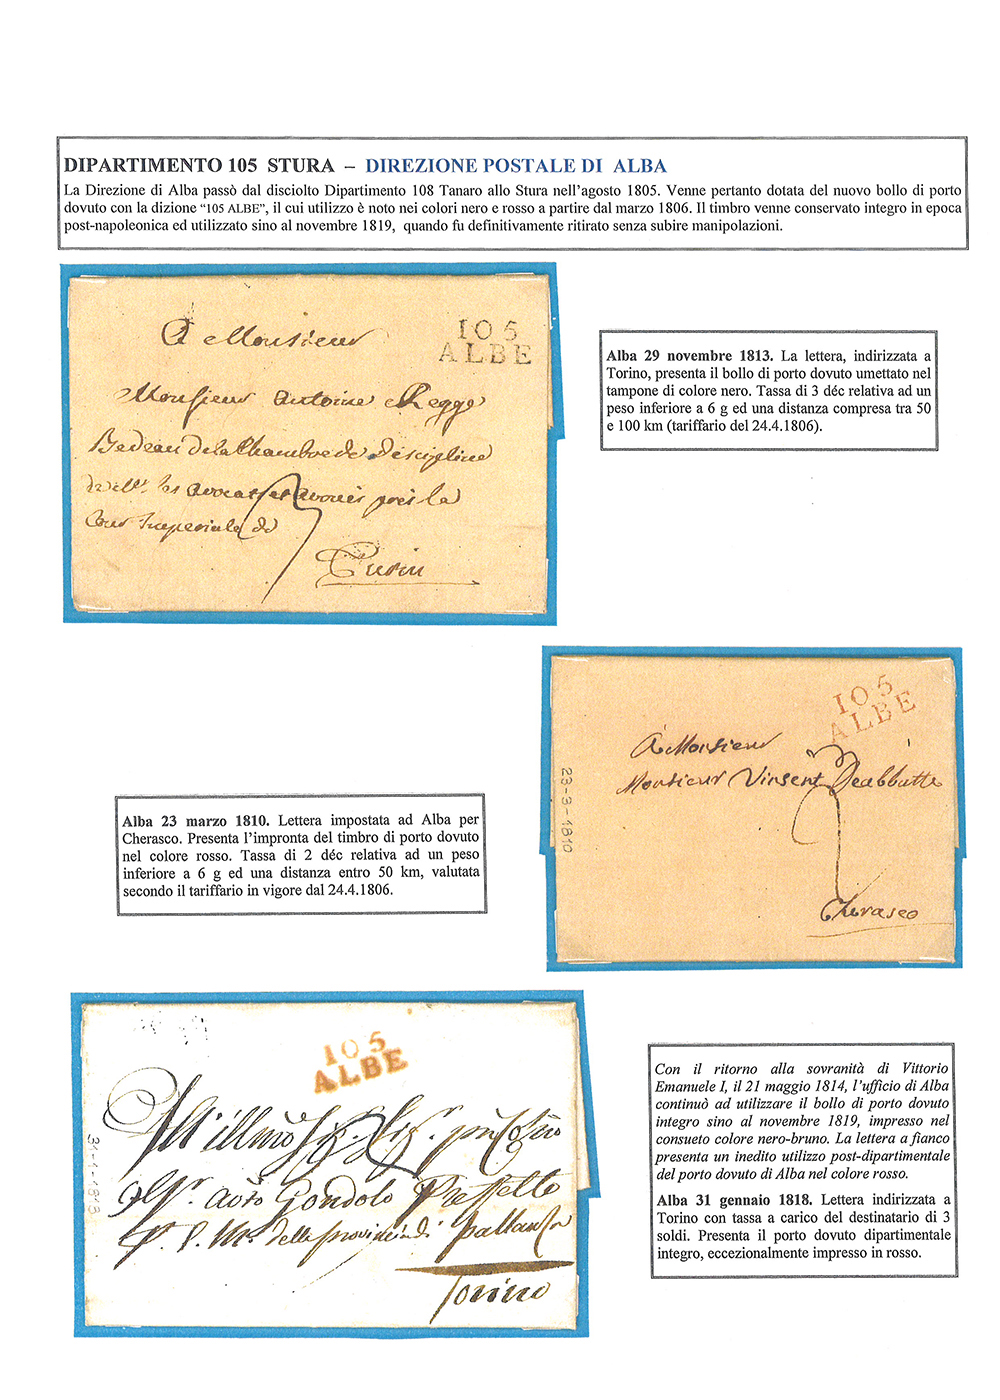 DIPARTIMENTO 105 STURA – DIREZIONE POSTALE DI ALBA
La Direzione di Alba passò dal disciolto Dipartimento 108 Tanaro allo Stura nell’agosto 1805. Venne pertanto dotata del nuovo bollo di porto
dovuto con la dizione “105 ALBE”, il cui utilizzo è noto nei colori nero e rosso a partire dal marzo 1806. Il timbro venne conservato integro in epoca
post-napoleonica ed utilizzato sino al novembre 1819, quando fu definitivamente ritirato senza subire manipolazioni.
105
ALBE
A Monsieur
Monsieur Antoine Regge
Bedeau de la Chambre de Discipline
les avocats et avoués près la
Cour Imperiale de
Turin
3
Alba 29 novembre 1813. La lettera, indirizzata a
Torino, presenta il bollo di porto dovuto umettato nel
tampone di colore nero. Tassa di 3 déc relativa ad un
peso inferiore a 6 g ed una distanza compresa tra 50
e 100 km (tariffario del 24.4.1806).
105
ALBE
A Monsieur
Monsieur Vinsent Deabbatte
2
Cherasco
23-3-1810
Alba 23 marzo 1810. Lettera impostata ad Alba per
Cherasco. Presenta l’impronta del timbro di porto dovuto
nel colore rosso. Tassa di 2 déc relativa ad un peso
inferiore a 6 g ed una distanza entro 50 km, valutata
secondo il tariffario in vigore dal 24.4.1806.
105
ALBE
All'illmo Sig. Sig.
Gondolo Prefetto
delle provincie di Pallanza
Torino
31-1-1818
Con il ritorno alla sovranità di Vittorio
Emanuele I, il 21 maggio 1814, l’ufficio di Alba
continuò ad utilizzare il bollo di porto dovuto
integro sino al novembre 1819, impresso nel
consueto colore nero-bruno. La lettera a fianco
presenta un inedito utilizzo post-dipartimentale
del porto dovuto di Alba nel colore rosso.
Alba 31 gennaio 1818. Lettera indirizzata a
Torino con tassa a carico del destinatario di 3
soldi. Presenta il porto dovuto dipartimentale
integro, eccezionalmente impresso in rosso.